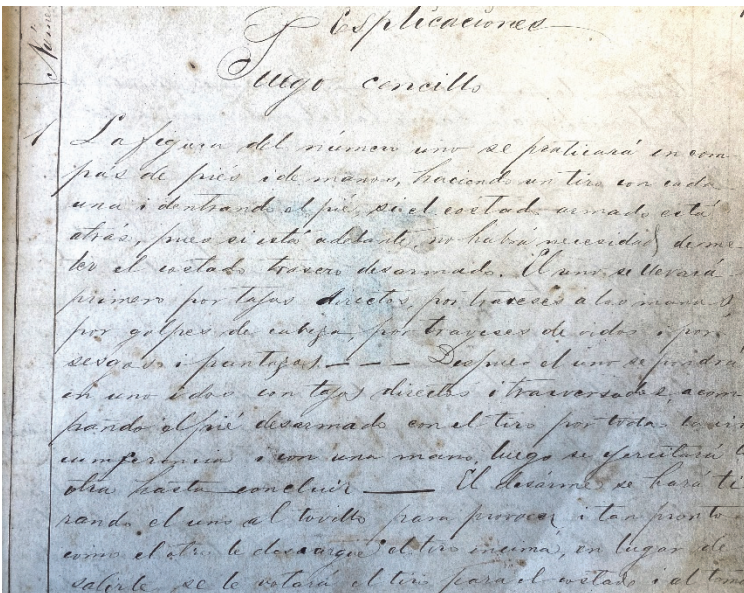 Núme
Esplicaciones
Juego cencillo
1 La figura del número uno se praticará en com
pas de piés i de manos, haciendo un tiro con cada
una i dentrando el pié, si el costado armado está
atras, pues si está adelante, no habrá necesidad de me
ter el costado trasero desarmado. El uno se llevará
primero por tajos directos, por traveses a las manos,
por golpes de cabeza, por traveses de oidos i por
sesgos i . — — — Despues el uno se pondrá
en uno i dos con tajos directos i traversados, acom
pañando el pié desarmado con el tiro por toda la cir
cumferencia i con una mano, luego se ejercitará la
otra hasta concluir —— El desárme se hará ti
rando el uno al tovillo para provocar i tan pronto
como el otro le descargue el tiro encima, en lugar de
salirle se le votará el tiro para el costado i al